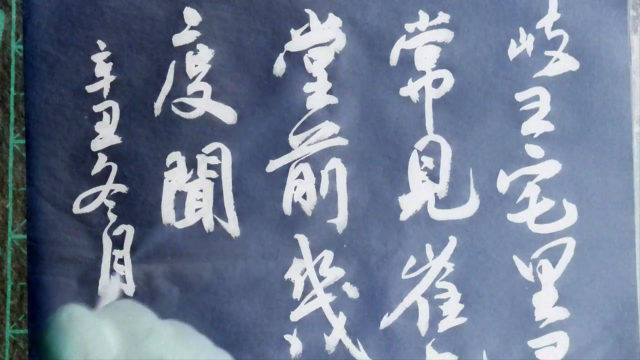 岐王宅里
常見崔
堂前幾
度聞
辛丑冬月